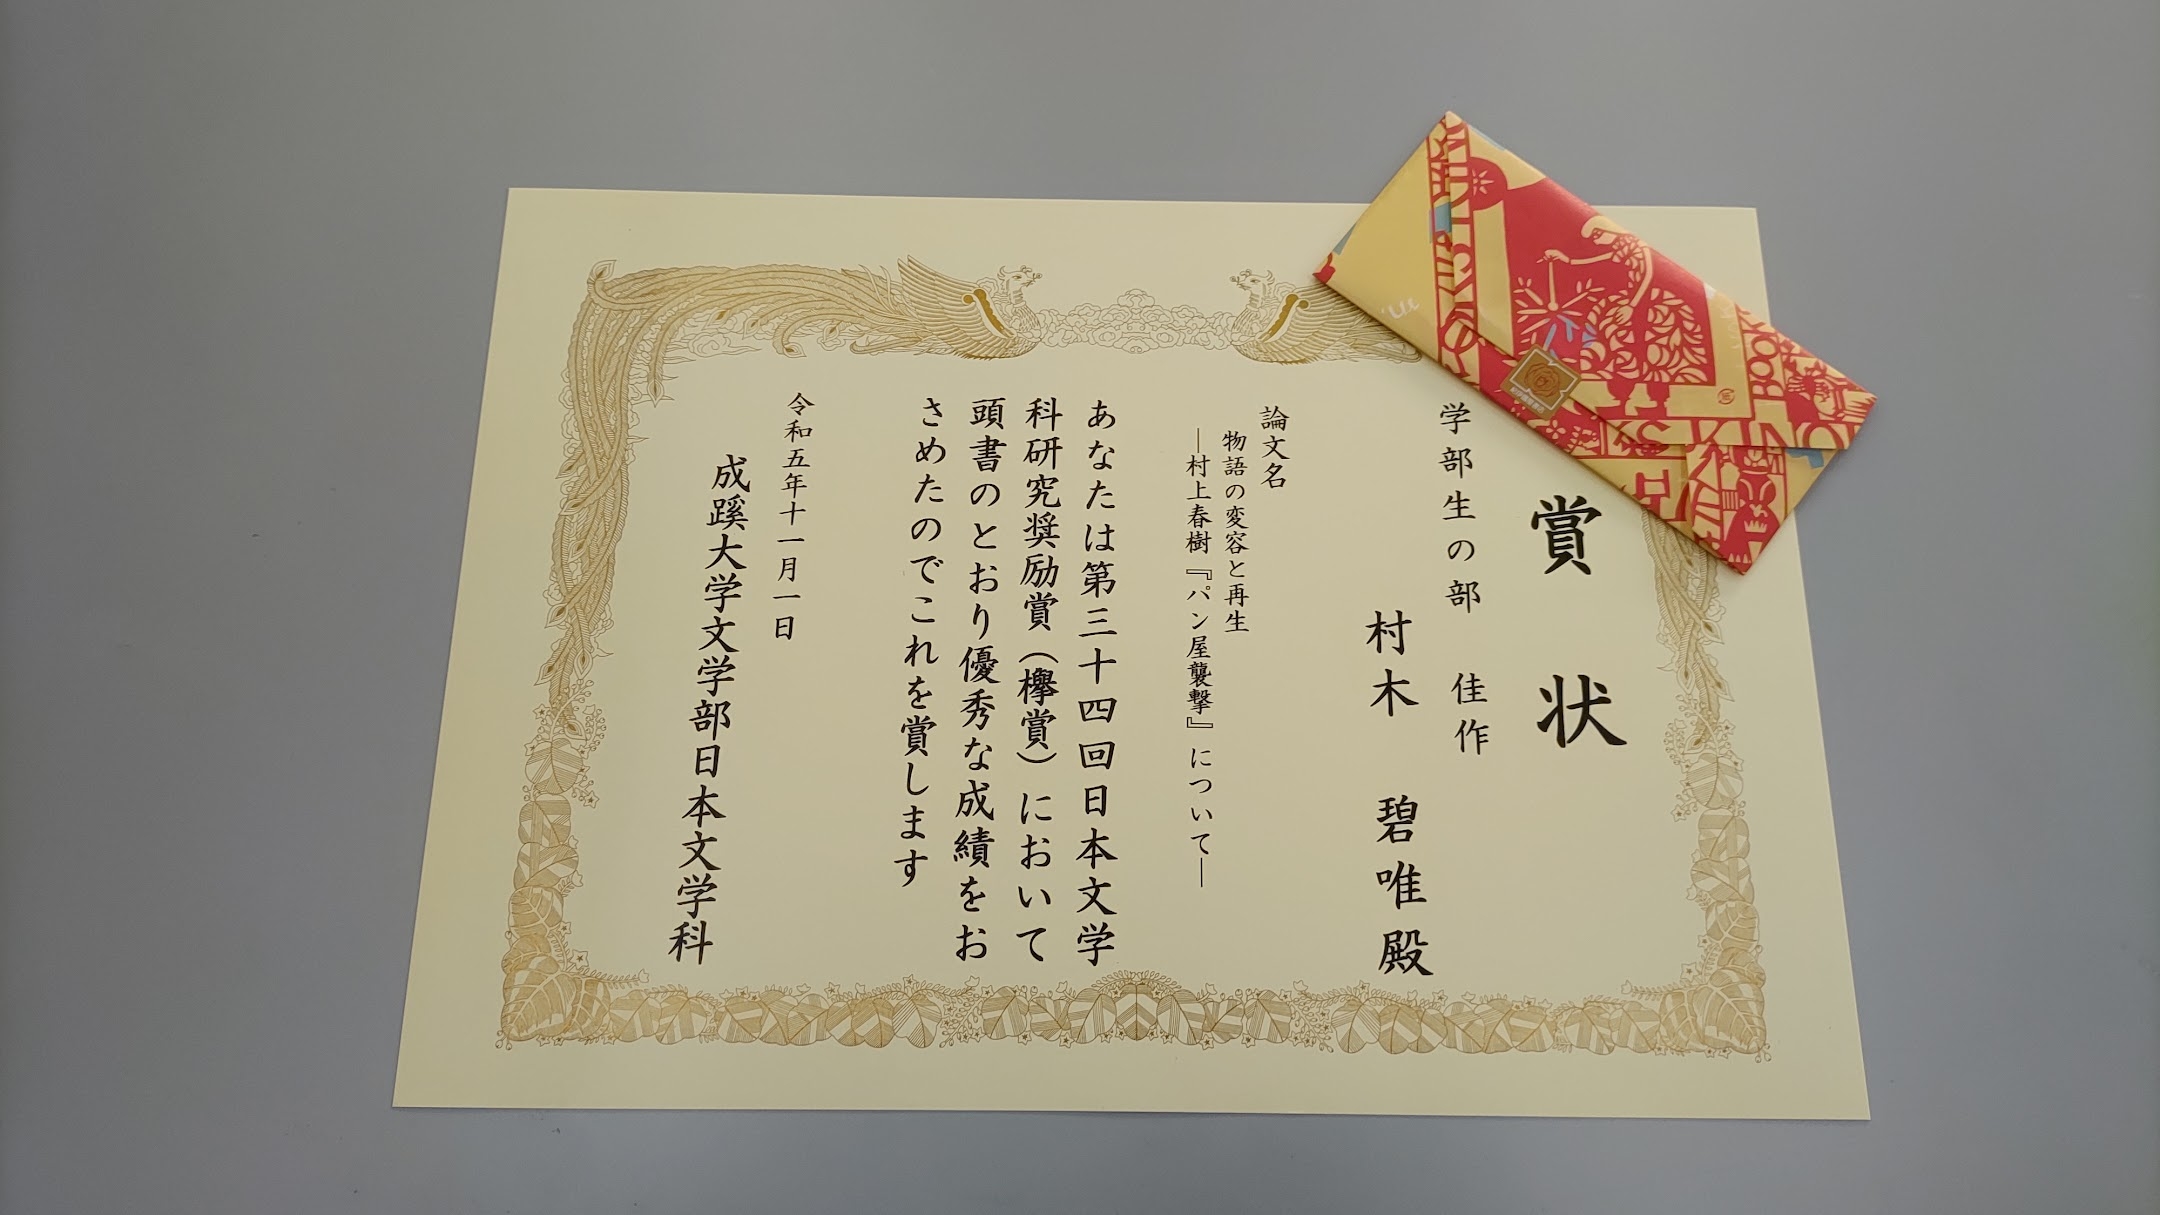 賞状
学部生の部 佳作
村木 碧唯殿
論文名
物語の変容と再生
―村上春樹『パン屋襲撃』について―
あなたは第三十四回日本文学
科研究奨励賞（欅賞）において
頭書のとおり優秀な成績をお
さめたのでこれを賞します
令和五年十一月一日
成蹊大学文学部日本文学科